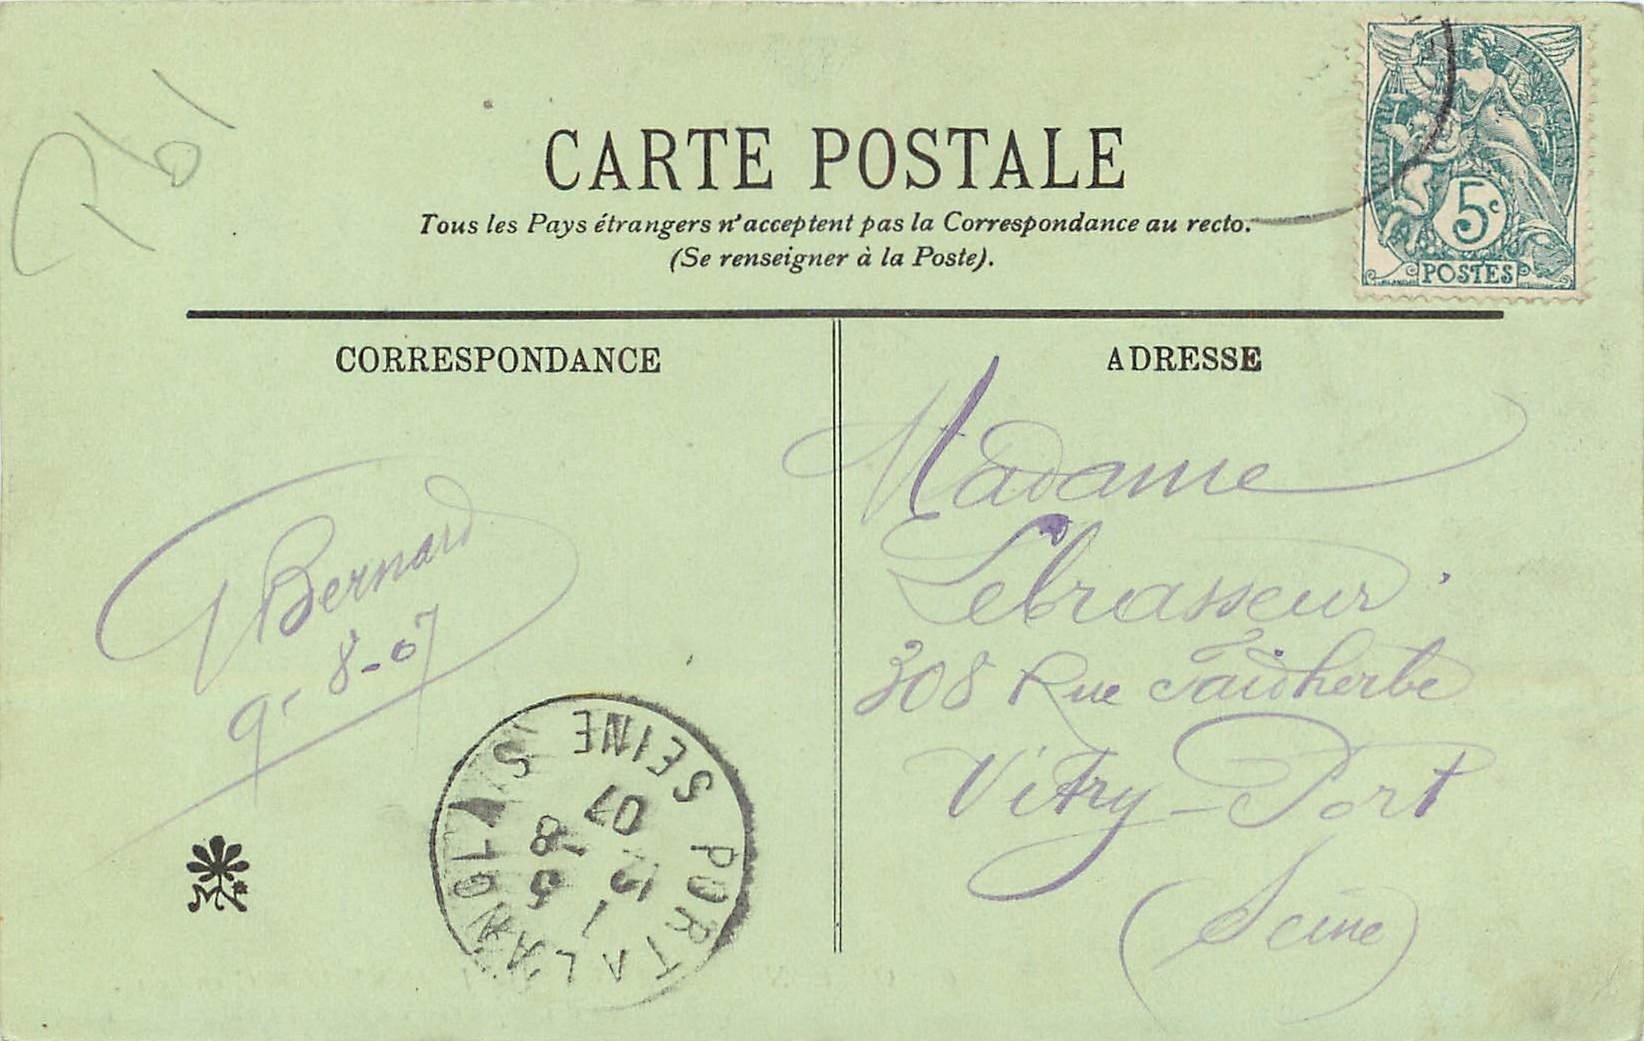 P61
CARTE POSTALE
Tous les Pays étrangers n'acceptent pas la Correspondance au recto.
(Se renseigner à la Poste).
5c
POSTES
CORRESPONDANCE
ADRESSE
Bernard
9-8-07
Madame
Lebrasseur
308 Rue Faidherbe
Vitry-Port
(Seine)
PORT A L'ANGLAIS
SEINE
07